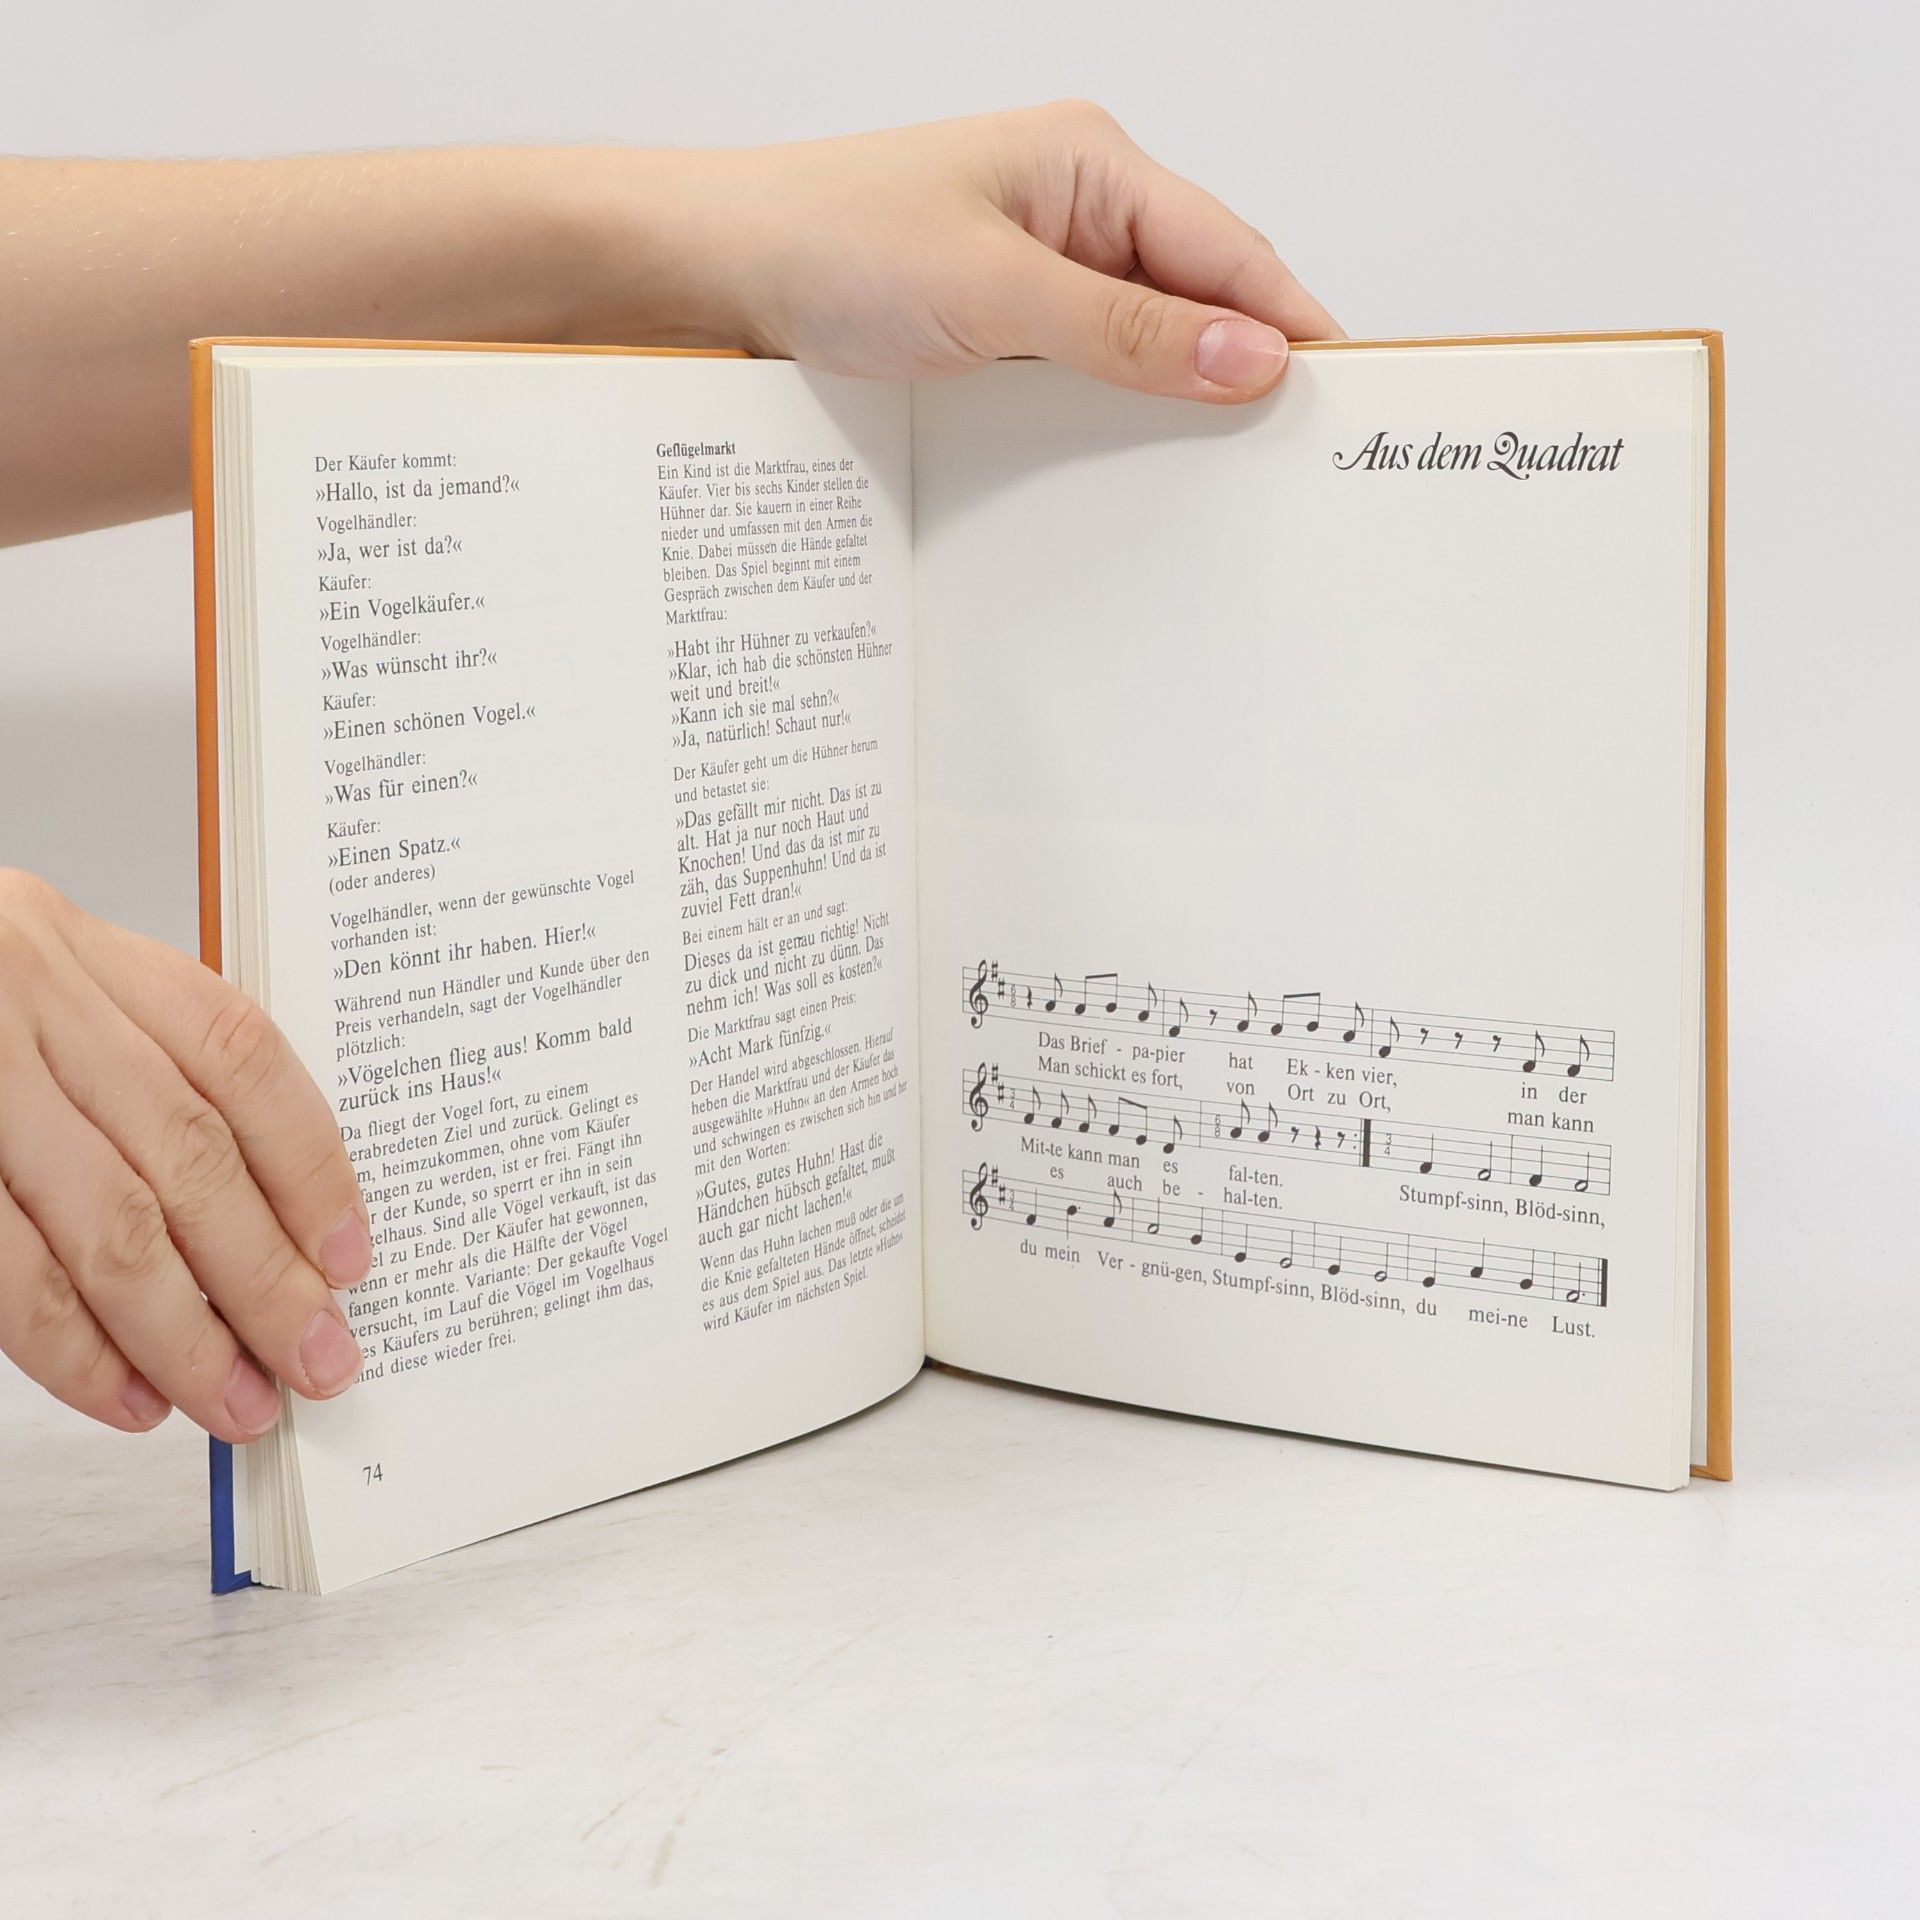 Der Käufer kommt:
»Hallo, ist da jemand?«
Vogelhändler:
»Ja, wer ist da?«
Käufer:
»Ein Vogelkäufer.«
Vogelhändler:
»Was wünscht ihr?«
Käufer:
»Einen schönen Vogel.«
Vogelhändler:
»Was für einen?«
Käufer:
»Einen Spatz.«
(oder anderes)
Vogelhändler, wenn der gewünschte Vogel
vorhanden ist:
»Den könnt ihr haben. Hier!«
Während nun Händler und Kunde über den
Preis verhandeln, sagt der Vogelhändler
plötzlich:
»Vögelchen flieg aus! Komm bald
zurück ins Haus!«
Da fliegt der Vogel fort, zu einem
erabredeten Ziel und zurück. Gelingt es
m, heimzukommen, ohne vom Käufer
fangen zu werden, ist er frei. Fängt ihn
r der Kunde, so sperrt er ihn in sein
gelhaus. Sind alle Vögel verkauft, ist das
el zu Ende. Der Käufer hat gewonnen,
wenn er mehr als die Hälfte der Vögel
fangen konnte. Variante: Der gekaufte Vogel
versucht, im Lauf die Vögel im Vogelhaus
es Käufers zu berühren; gelingt ihm das,
ind diese wieder frei.
74
Geflügelmarkt
Ein Kind ist die Marktfrau, eines der
Käufer. Vier bis sechs Kinder stellen die
Hühner dar. Sie kauern in einer Reihe
nieder und umfassen mit den Armen die
Knie. Dabei müssen die Hände gefaltet
bleiben. Das Spiel beginnt mit einem
Gespräch zwischen dem Käufer und der
Marktfrau:
»Habt ihr Hühner zu verkaufen?«
»Klar, ich hab die schönsten Hühner
weit und breit!«
»Kann ich sie mal sehn?«
»Ja, natürlich! Schaut nur!«
Der Käufer geht um die Hühner herum
und betastet sie:
»Das gefällt mir nicht. Das ist zu
alt. Hat ja nur noch Haut und
Knochen! Und das da ist mir zu
zäh, das Suppenhuhn! Und da ist
zuviel Fett dran!«
Bei einem hält er an und sagt:
Dieses da ist genau richtig! Nicht
zu dick und nicht zu dünn. Das
nehm ich! Was soll es kosten?«
Die Marktfrau sagt einen Preis:
»Acht Mark fünfzig.«
Der Handel wird abgeschlossen. Hierauf
heben die Marktfrau und der Käufer das
ausgewählte »Huhn« an den Armen hoch
und schwingen es zwischen sich hin und her
mit den Worten:
»Gutes, gutes Huhn! Hast die
Händchen hübsch gefaltet, mußt
auch gar nicht lachen!«
Wenn das Huhn lachen muß oder die um
die Knie gefalteten Hände öffnet, scheidet
es aus dem Spiel aus. Das letzte »Huhn«
wird Käufer im nächsten Spiel.
Aus dem Quadrat
6 8
Das Brief - pa-pier hat Ek - ken vier, in der
Man schickt es fort, von Ort zu Ort, man kann
3 4 6 8 3 4
Mit-te kann man es fal-ten. Stumpf-sinn, Blöd-sinn,
es auch be - hal-ten.
3 4
du mein Ver - gnü-gen, Stumpf-sinn, Blöd-sinn, du mei-ne Lust.